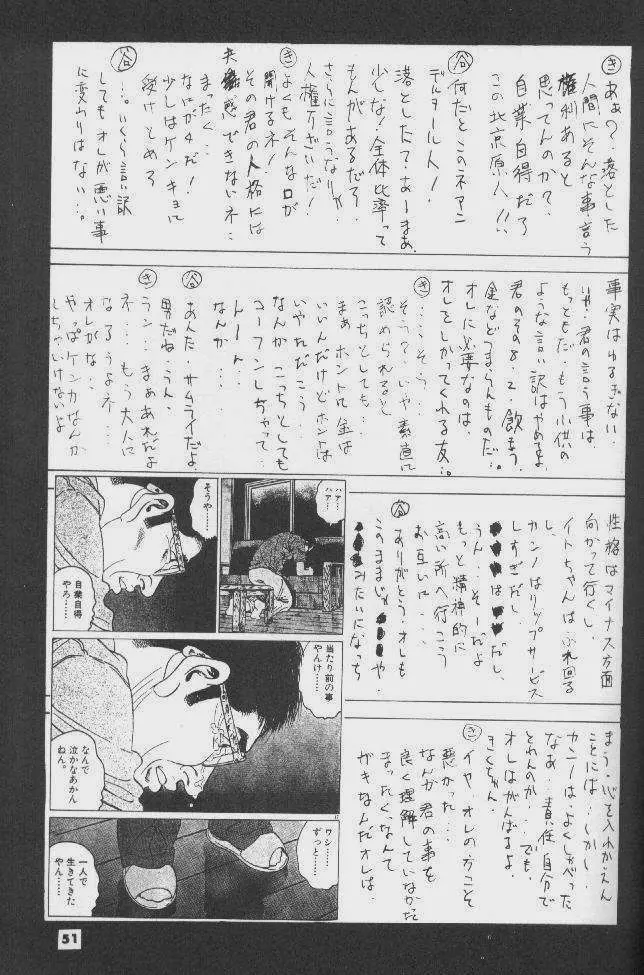 き あぁの?落とした
人間にそんな事言う
権利あると
思ってんのか?
自業自得だろ
この北京原人!!
谷 何だとこのネアン
デルタール人!
落としたてあーまあ
少しな!全体比率って
もんがあるだろ
さらに言うなりゃ
人権ようごいだ!
き よくもそんな口が
聞けるネ!
その君の人格には
共感できないネ…
まったく…
なにが4だ!
少しはケンキョに
受けとめろ
谷 …。いくら言い訳
してもオレが悪い事
に変わりはない…。
事実はゆるぎない
いや…君の言う事は
もっともだ もう小供の
ような言い訳はやめるよ
君のその8.2、飲もう
金などつまらんものだ。
オレに必要なのは、
オレをしかってくれる友…。
き …こそら…
そう?いや素直に
認められると
こっちとしても、
まぁホント化金は
いいんだけどホントは
いやただこう…
なんかこっちとしても
コーフンしちゃって…
トーン…
なんか…
谷 あんた サムライだよ
男だね…うん。
き ラン…まぁあれだよ
ネ…もう大人に
なろうよネ…
オレがな…
やっぱケンカなんか
しちゃいけないよ
性格はマイナス方面
向かって行くし、
イトちゃんは ぶれ回る
し、
カンノはリップサービス
しすぎだし、
は だし、
うん…そーだよ
もっと精神的に
高い所へ行こう
お互いに…
谷 ありがとう、オレも
このままじゃ や
みたいになっち
まう…心を入れかえん
ことには…しかし、
カンノは、よくしゃべった
なぁ…責任自分で
とれんのか…でも、
オレはがんばるよ
きくちゃん
き イヤ、オレの方こそ
悪かった…
なんか君の事を
良く理解していなかた
まったく、なんて
ガキなんだオレは、
ハァ…
ハァ…
そうや……
自業自得
やろ……
当たり前の事
やんけ……
なんで
泣かなあかん
ねん。
ワシ……
ずっと……
一人で
生きてきた
やん……
51